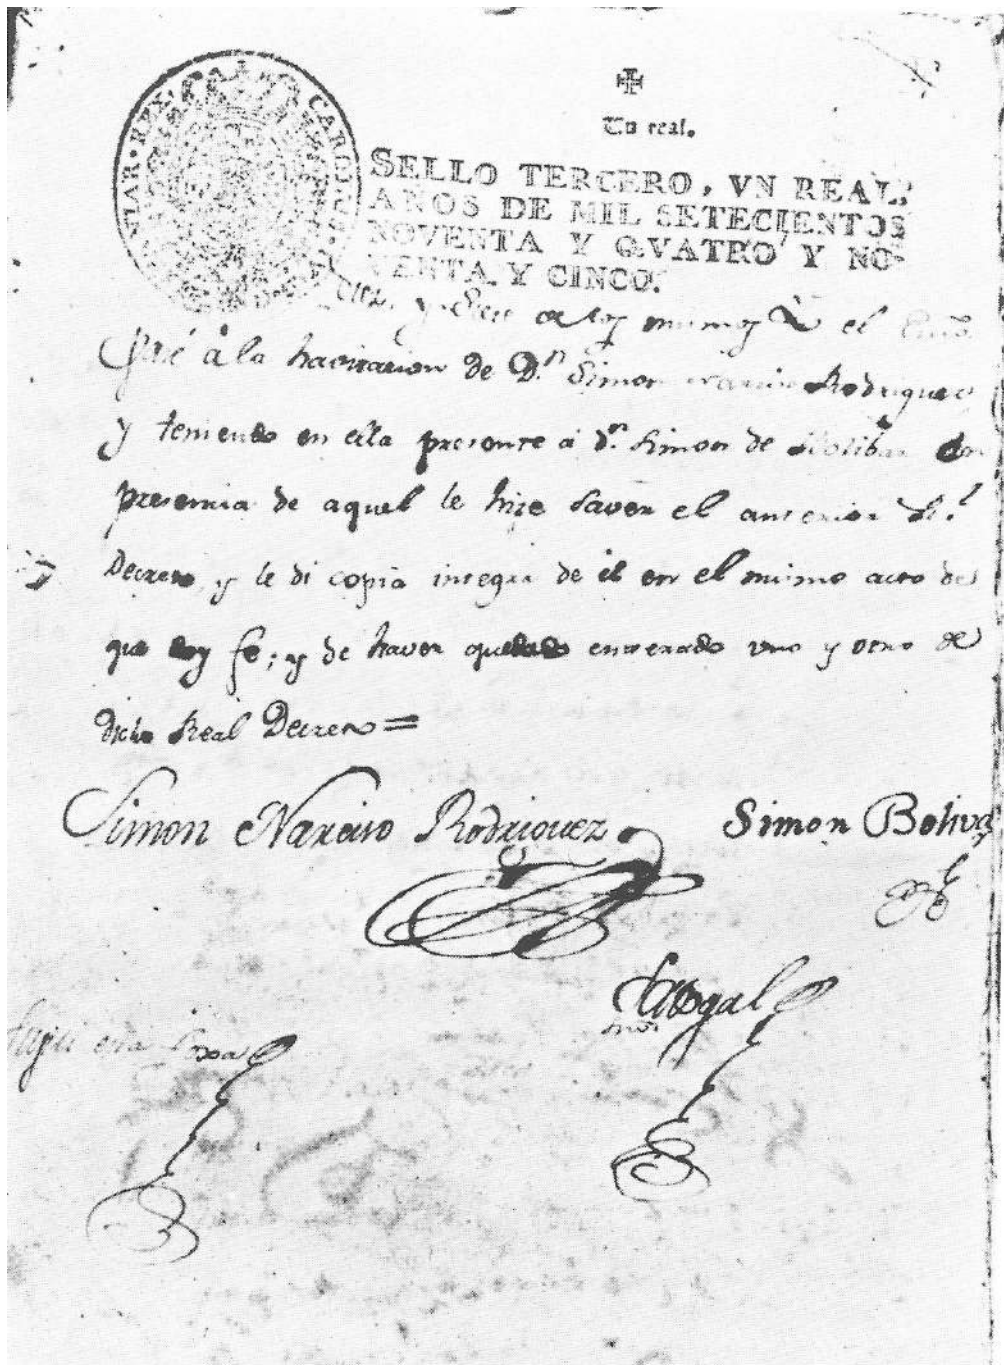 CAROLUS
HISPANIAR. REX.
Un real.
SELLO TERCERO, VN REAL,
AÑOS DE MIL SETECIENTOS
NOVENTA Y QVATRO Y NO-
VENTA Y CINCO.
y Siete de los mismos el
Pasé á la havitacion de Dn. Simon Narciso Rodriguez
y teniendo en ella presente á dn. Simon de Bolibar en
presencia de aquel le hize saver el anterior Rl.
Decreto, y le di copia integra de él en el mismo acto de
que doy fe; y de haver quedado enterado uno y otro de
dicho Real Decreto =
Simon Narciso Rodriguez
Simon Bolivar